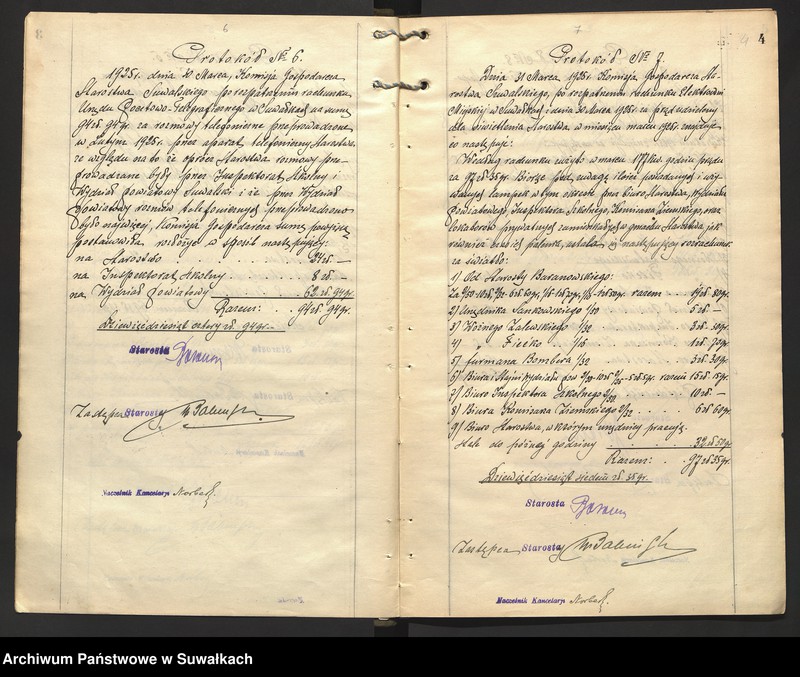 6
Protokół № 6.
1925 r. dnia 20 Marca, Komisja Gospodarcza
Starostwa Suwalskiego po rozpatrzeniu rachunku
Urzędu Pocztowo-Telegraficznego w Suwałkach na sumę
94 zł. 94 gr. za rozmowy telefoniczne przeprowadzone
w Lutym 1925 r. przez aparat telefoniczny Starostwa
ze względu na to że oprócz Starostwa rozmowy prze-
prowadzane były przez Inspektorat Szkolny i
Wydział Powiatowy Suwalski i że przez Wydział
Powiatowy rozmów telefonicznych przeprowadzono
było najwięcej, Komisja Gospodarcza sumę powyższą
postanowiła rozłożyć w sposób następujący:
na Starostwo . . . 24 zł. —
na Inspektorat Szkolny . . . 8 zł. —
na Wydział Powiatowy 62 zł. 94 gr.
Razem: . . 94 zł. 94 gr.
Dziewięćdziesiąt cztery zł. 94 gr.
Starosta
Zastępca Starosty
Naczelnik Kancelarji
7
4
Protokół № 7.
Dnia 31 Marca 1925 r. Komisja Gospodarcza Sta-
rostwa Suwalskiego, po rozpatrzeniu rachunku Elektrowni
Miejskiej w Suwałkach z dnia 30 Marca 1925 r. za prąd udzielony
dla oświetlenia Starostwa w miesiącu marcu 1925 r.
co następuje:
Według rachunku zużyto w marcu 177 kw. godzin prądu
za 97 zł. 35 gr. Biorąc pod uwagę ilość posiadanych i
lampek w tym okresie przez biuro Starostwa, Wydziału
Powiatowego, Inspektora Szkolnego, Komisarza Ziemskiego, oraz
lokatorów prywatnych zamieszkałych w gmachu Starostwa, jak
również
za światło:
1) Od Starosty Baranowskiego:
razem . 17 zł. 80 gr.
2) Urzędnika Sankowskiego 1/50 . . . 5 zł. —
3) Woźnego Zalewskiego 1/32 . . . 3 zł. 30 gr.
4) 1/16 . . . 1 zł. 70 gr.
5) furmana Bombera 1/32 . . . 3 zł. 30 gr.
6) razem 15 zł. 15 gr.
7) Biuro Inspektora Szkolnego 10 zł. —
8) Biura Komisarza Ziemskiego 2/32 . . . 6 zł. 60 gr.
9) Biuro Starostwa, w którym urzędnicy pracują
stale do późnej godziny . . . 32 zł. 50 gr.
Razem: . 97 zł. 35 gr.
Dziewięćdziesiąt siedem zł. 35 gr.
Starosta
Zastępca Starosty
Naczelnik Kancelarji
Archiwum Państwowe w Suwałkach